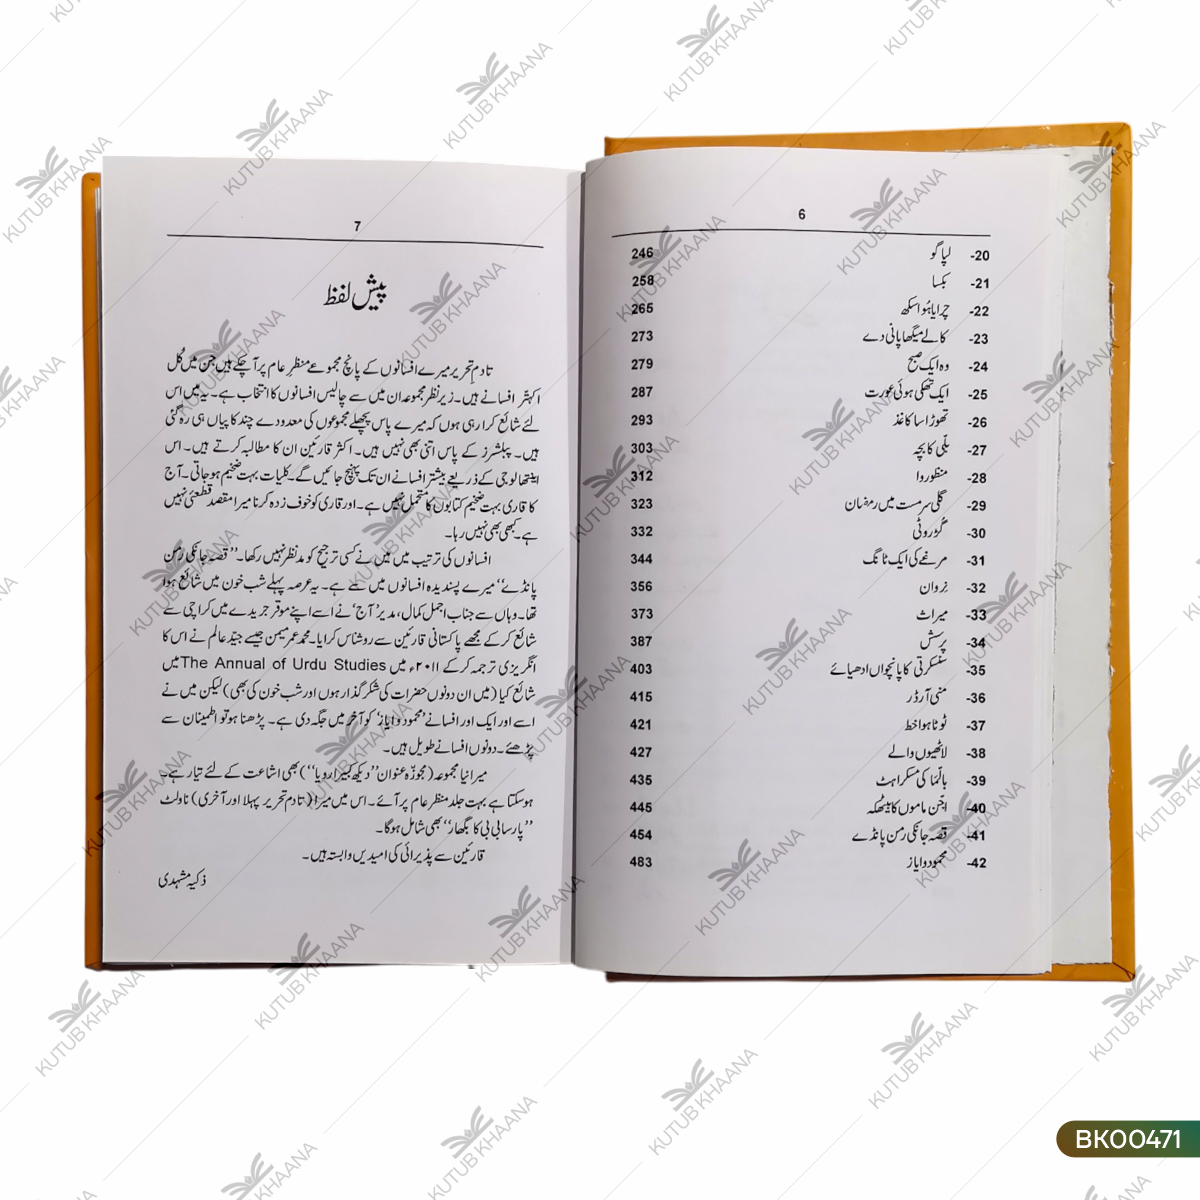 6
20- لپاگو 246
21- بکسا 258
22- چرایا ہُوا سکھ 265
23- کالے میگھا پانی دے 273
24- وہ ایک صبح 279
25- ایک تھکی ہوئی عورت 287
26- تھوڑا سا کاغذ 293
27- بلّی کا بچّہ 303
28- منظوروا 312
29- گلی سرمست میں رمضان 323
30- گڑ روٹی 332
31- مرغے کی ایک ٹانگ 344
32- نِروان 356
33- میراث 373
34- پرسش 387
35- سنسکرتی کا پانچواں ادھیائے 403
36- منی آرڈر 415
37- ٹوٹا ہوا خط 421
38- لاٹھیوں والے 427
39- بالثا کی مسکراہٹ 435
40- اچّھن ماموں کا بیٹھکہ 445
41- قصہ جانکی رمن پانڈے 454
42- محمود و ایاز 483
7
پیش لفظ
تادمِ تحریر میرے افسانوں کے پانچ مجموعے منظرِ عام پر آ چکے ہیں جن میں کُل
اکہتّر افسانے ہیں۔ زیرِ نظر مجموعہ ان میں سے چالیس افسانوں کا انتخاب ہے۔ یہ میں اس
لئے شائع کرا رہی ہوں کہ میرے پاس پچھلے مجموعوں کی معدودے چند کاپیاں ہی رہ گئی
ہیں۔ پبلشرز کے پاس اتنی بھی نہیں ہیں۔ اکثر قارئین ان کا مطالبہ کرتے ہیں۔ اس
اینتھالوجی کے ذریعے بیشتر افسانے ان تک پہنچ جائیں گے۔ کلیات بہت ضخیم ہو جاتی۔ آج
کا قاری بہت ضخیم کتابوں کا متحمل نہیں ہے۔ اور قاری کو خوف زدہ کرنا میرا مقصد قطعئی نہیں
ہے۔ کبھی بھی نہیں رہا۔
افسانوں کی ترتیب میں میں نے کسی ترجیح کو مدِنظر نہیں رکھا۔ ’’قصہ جانکی رمن
پانڈے‘‘ میرے پسندیدہ افسانوں میں سے ہے۔ یہ عرصہ پہلے شب خون میں شائع ہوا
تھا۔ وہاں سے جناب اجمل کمال، مدیر ’آج‘ نے اسے اپنے موقر جریدے میں کراچی سے
شائع کر کے مجھے پاکستانی قارئین سے روشناس کرایا۔ محمد عمر میمن جیسے جیّد عالم نے اس کا
انگریزی ترجمہ کر کے ۲۰۱۱ء میں The Annual of Urdu Studies میں
شائع کیا (میں ان دونوں حضرات کی شکر گذار ہوں اور شب خون کی بھی) لیکن میں نے
اسے اور ایک اور افسانے ’محمود و ایاز‘ کو آخر میں جگہ دی ہے۔ پڑھنا ہو تو اطمینان سے
پڑھئے۔ دونوں افسانے طویل ہیں۔
میرا نیا مجموعہ (مجوزّہ عنوان ’’دیکھ کبیرا رویا‘‘) بھی اشاعت کے لئے تیار ہے۔
ہو سکتا ہے بہت جلد منظرِ عام پر آئے۔ اس میں میرا (تادمِ تحریر پہلا اور آخری) ناولٹ
’’پارسا بی بی کا بگھار‘‘ بھی شامل ہو گا۔
قارئین سے پذیرائی کی امیدیں وابستہ ہیں۔
ذکیہ مشہدی
KUTUB KHAANA
BK00471